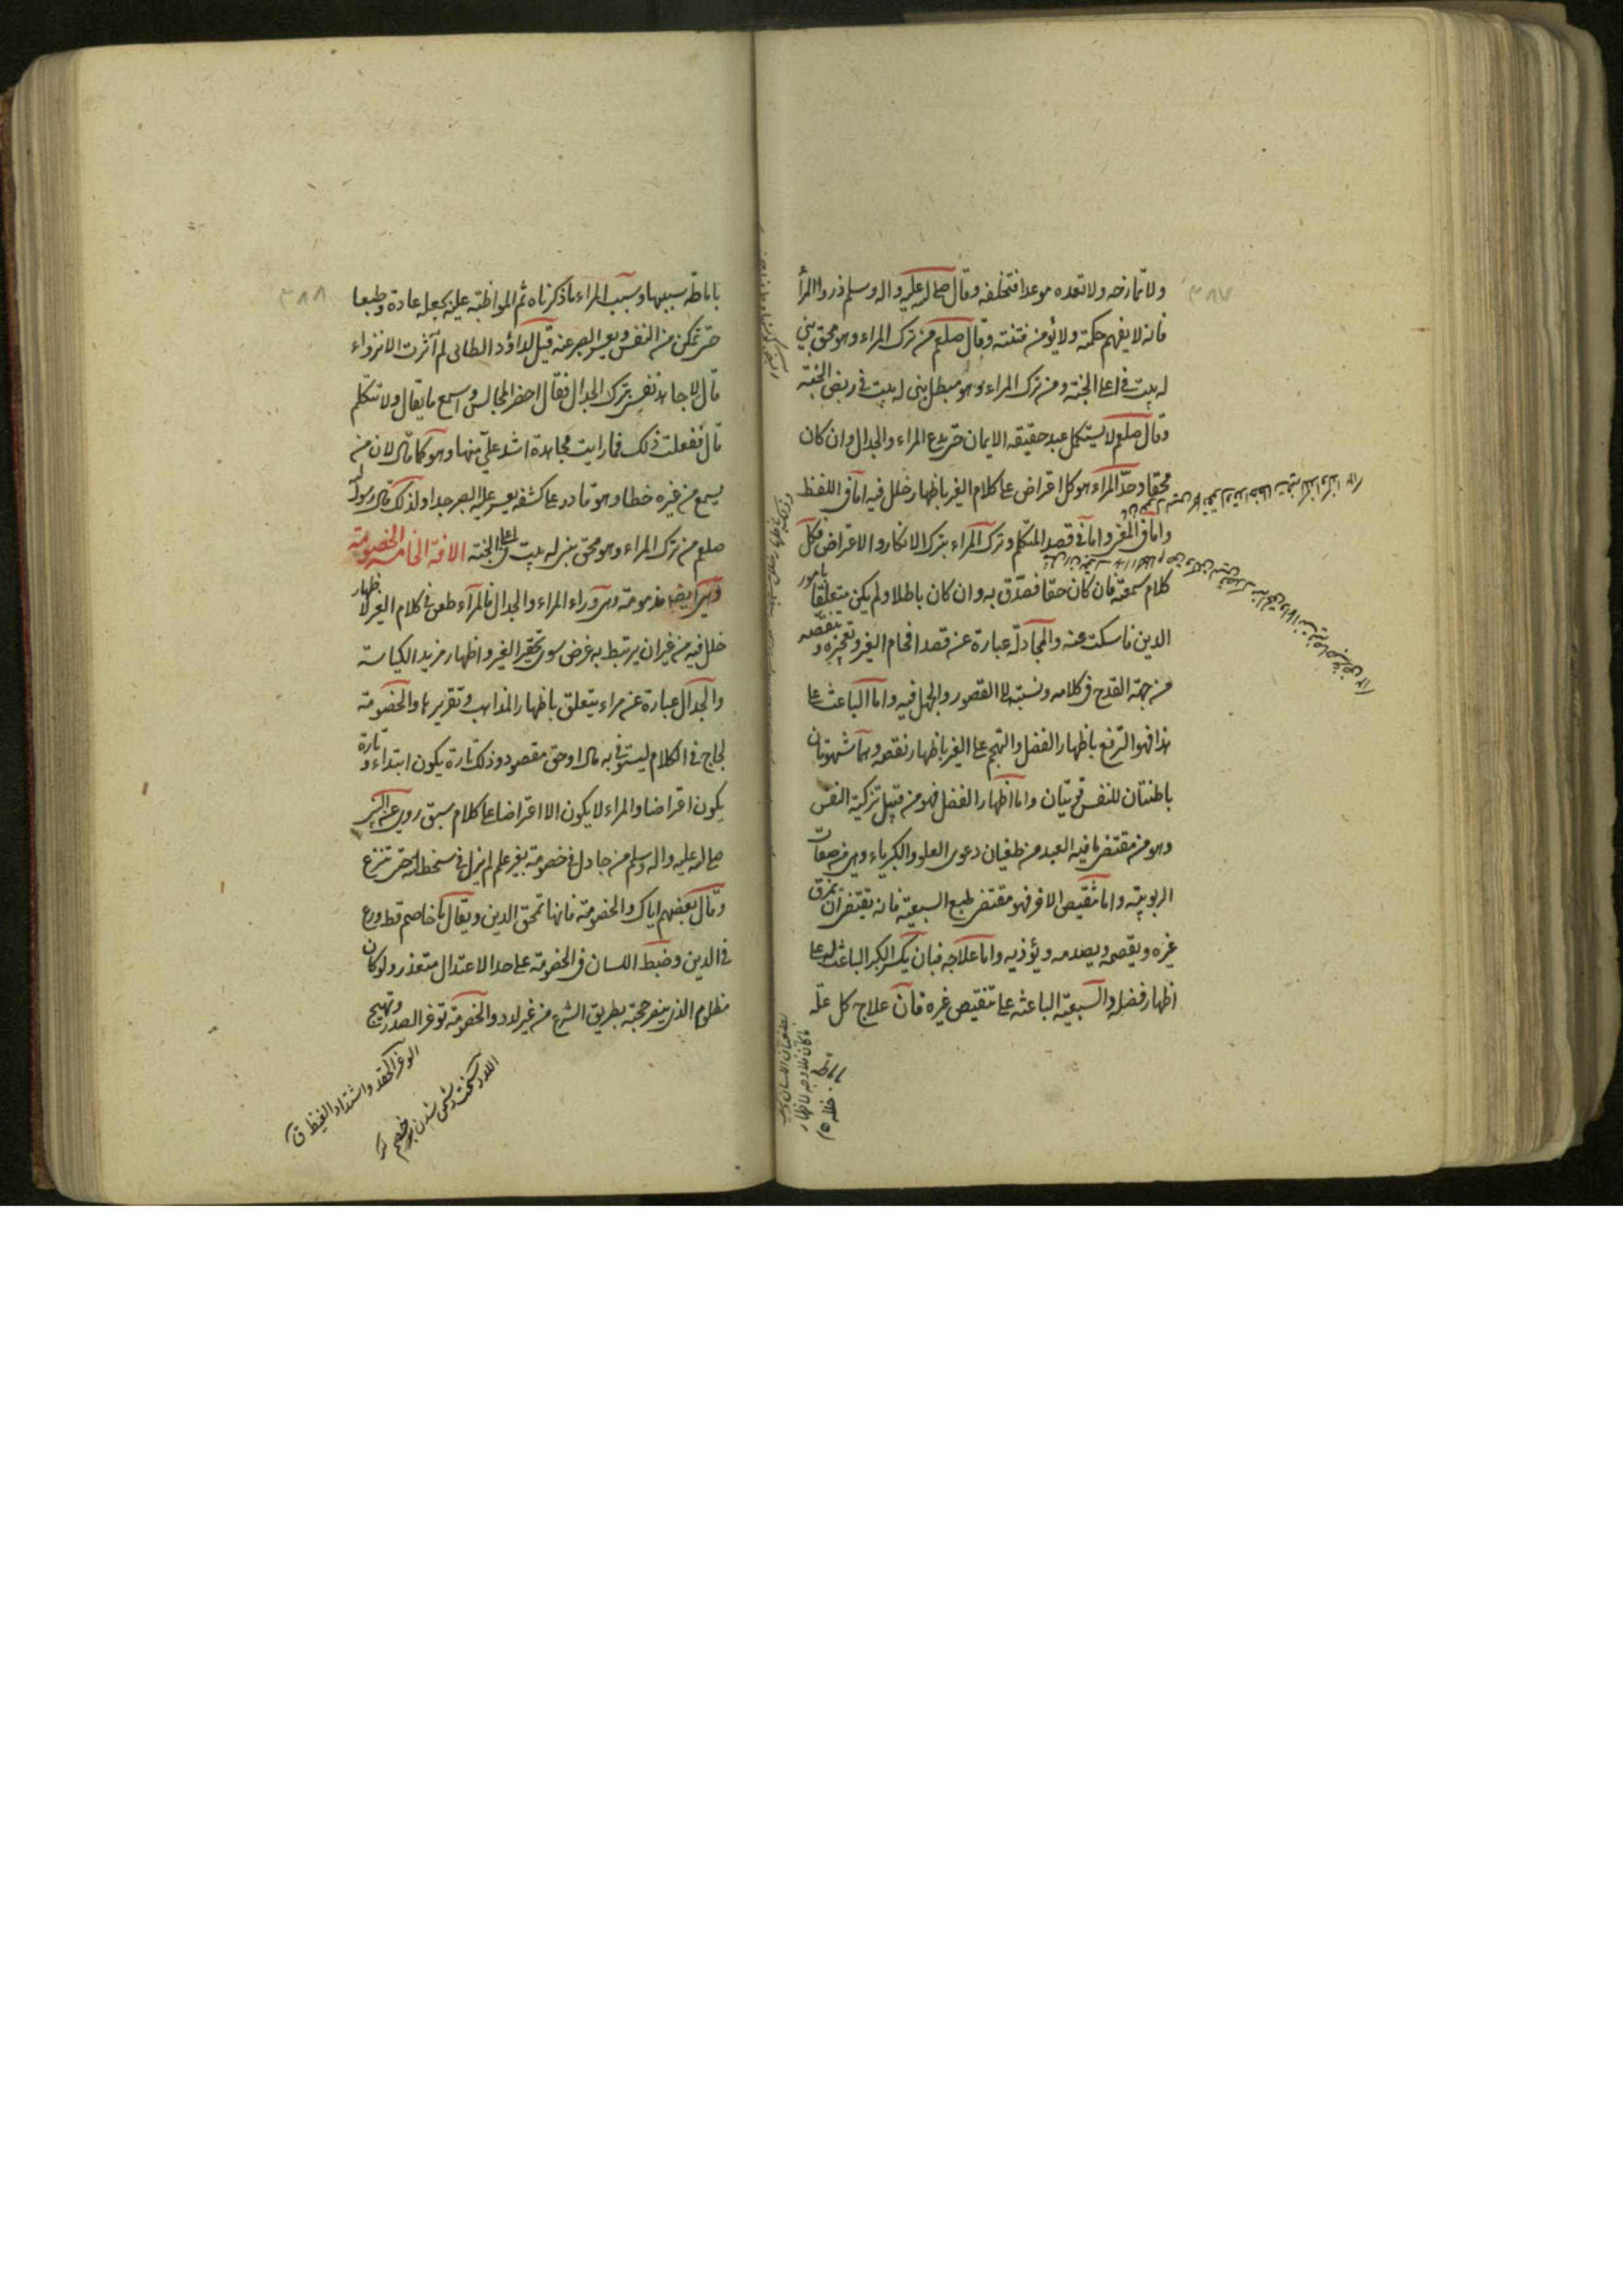 ٣٨٧
ولا تمازحه ولا تعده موعدا فتخلفه وقال صلى الله عليه واله وسلم ذروا المرأ
فانه لا يفهم حكمته ولا يؤمن فتنته وقال صلعم من ترك المراء وهو محق بني
له بيت في اعلى الجنة ومن ترك المراء وهو مبطل بنى له بيت في ربض الجنة
وقال صلعم لا يستكمل عبد حقيقه الايمان حتى يدع المراء والجدال وان كان
محقا وحدّ المراء هو كل اعتراض على كلام الغير باظهار خلل فيه اما فى اللفظ
واما فى المعنى واما فى قصد المتكلم وترك المراء بترك الانكار والاعتراض فكل
كلام سمعته فان كان حقا فصدّق به وان كان باطلا ولم يكن متعلقا بامور
الدين فاسكت عنه والمجادلة عبارة عن قصد افحام الغير وتعجيزه وتنقصه
من جهة القدح فى كلامه ونسبته الى القصور والجهل فيه واما الباعث على
هذا فهو الترفع باظهار الفضل والتهجم على الغير باظهار نقصه وهما شهوتان
باطنتان للنفس قويتان واما اظهار الفضل فهو من قبيل تزكية النفس
وهو من مقتضى ما فيه العبد من طغيان دعوى العلو والكبرياء وهى من صفات
الربوبية واما تنقيص الاخر فهو مقتضى طبع السبعية فانه يقتضى ان يمزق
غيره ويقصمه ويصدمه ويؤذيه واما علاجه فبان يكسر الكبر الباعث له على
اظهار فضله والسبعية الباعثه على تنقيص غيره فان علاج كل علة
باماطة
٣٨٨
باماطة سببها وسبب المراء ما ذكرناه ثم المواظبة عليه يجعله عادة وطبعا
حتى تمكن من النفس ويعسر الصبر عنه قيل لداؤد الطائى لم آثرت الانزواء
قال لاجاهد نفسى بترك الجدال فقال احضر المجالس واسمع ما يقال ولا تتكلم
قال ففعلت ذلك فما رايت مجاهدة اشد علىّ منها وهو كما قال لان من
يسمع من غيره خطا وهو قادر على كشفه يعسر عليه الصبر جدا ولذلك قال رسول الله
صلعم من ترك المراء وهو محق بنى له بيت فى اعلى الجنة الافة الخامسه الخصومة
وهى ايضا مذمومة وهى وراء المراء والجدال فالمرآء طعن فى كلام الغير لاظهار
خلل فيه من غير ان يرتبط به غرض سوى تحقير الغير واظهار مزيد الكياسة
والجدال عبارة عن مراء يتعلق باظهار المذاهب وتقريرها والخصومة
لجاج فى الكلام ليستوفى به مال او حق مقصود وذلك تارة يكون ابتداء وتارة
يكون اعتراضا والمراء لا يكون الا اعتراضا على كلام سبق روى عن النبى
صلى الله عليه واله وسلم من جادل فى خصومة بغير علم لم يزل فى سخط الله حتى تنزع
وقال بعضهم اياك والخصومة فانها تمحق الدين ويقال ما خاصم قط ورع
فى الدين وضبط اللسان فى الخصومة على حد الاعتدال متعذر ولو كان
مظلوم الذى ينصر حجته بطريق الشرع من غير لدد والخصومة توغر الصدر وتهيج
الوغر الحقد واشتداد الغيظ ق
اللدد سخت دشمنى شدن بر خصم